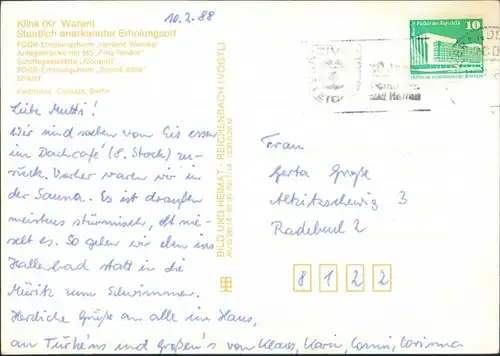 10.2.88
Klink (Kr. Waren)
Staatlich anerkannter Erholungsort
FDGB-Erholungsheim „Herbert Warnke"
Anlegebrücke mit MS „Fritz Reuter"
Schiffsgaststätte
FDGB-Erholungsheim
Strand
Berlin
Liebe Mutti!
Wir sind soeben vom Eis essen
im Dachcafé (8. Stock) zu-
rück. Vorher waren wir in
der Sauna. Es ist draußen
meistens stürmisch, oft nie-
selt es. So gehen wir eben ins
Hallenbad statt in die
Müritz zum Schwimmen.
Herzliche Grüße an alle im Haus,
an und Großen's von Klaus, Karin, Corinna
BILD UND HEIMAT · REICHENBACH (VOGTL)
10
Frau
Gerta Große
Altkötzschenbr. 3
Radebeul 2
8 1 2 2